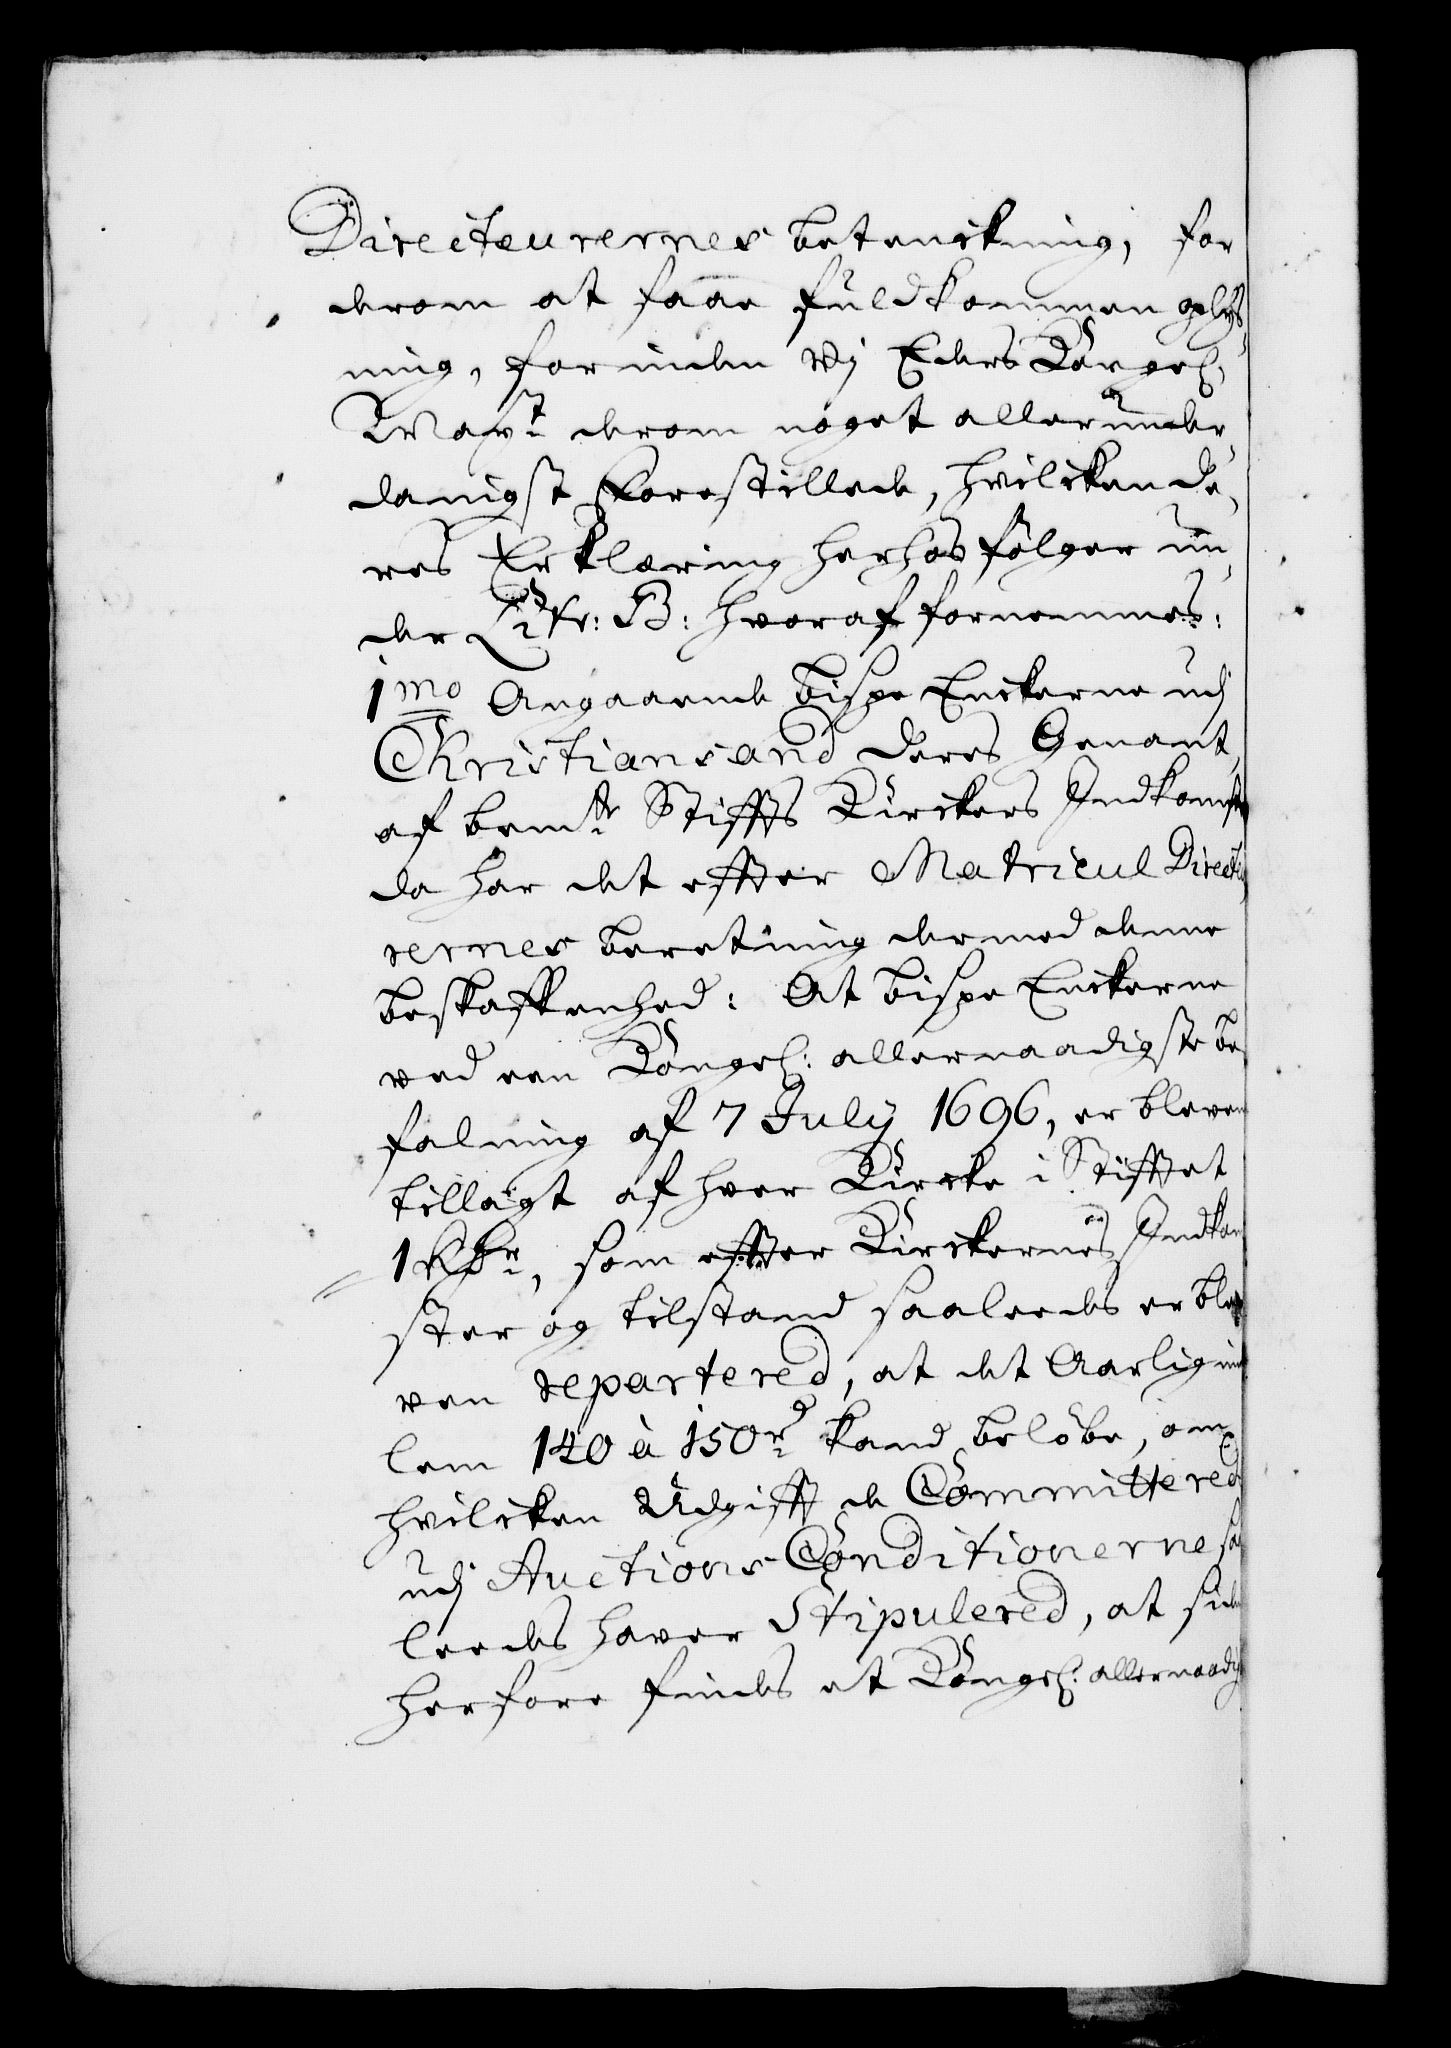 Directeurernes betenckning, for
derom at faae fuldkommen oplys-
ning, forinden Wj Eders Kongel:
May:st derom noget allerunder-
danigst Forestillede, hvilcken de-
res Erklæring herhos følger un-
der Litr: B: hvoraf fornemmes:
1mo Angaaende bispe Enckerne udj
Christiansand deres Genant,
af bem:te Stiffts Kirckers Indkomster
da har det effter Matricul Directeu-
rernes beretning dermed denne
beskaffenhed: At bispe Enckerne
ved een Kongel: allernaadigste be-
falning af 7 July 1696, er bleven
tillagt af hver Kircke i Stifftet
1 Rdr, som effter Kirckernes Indkom-
ster og tilstand saaledes er ble-
ven repartered, at det Aarlig im-
lem 140 à 150 rd kand beløbe, om
hvilcken Udgifft de Committerede
udj Auctions Conditionerne saa-
leedes haver Stipulered, at siden
herfore findes et Kongel: allernaadigst